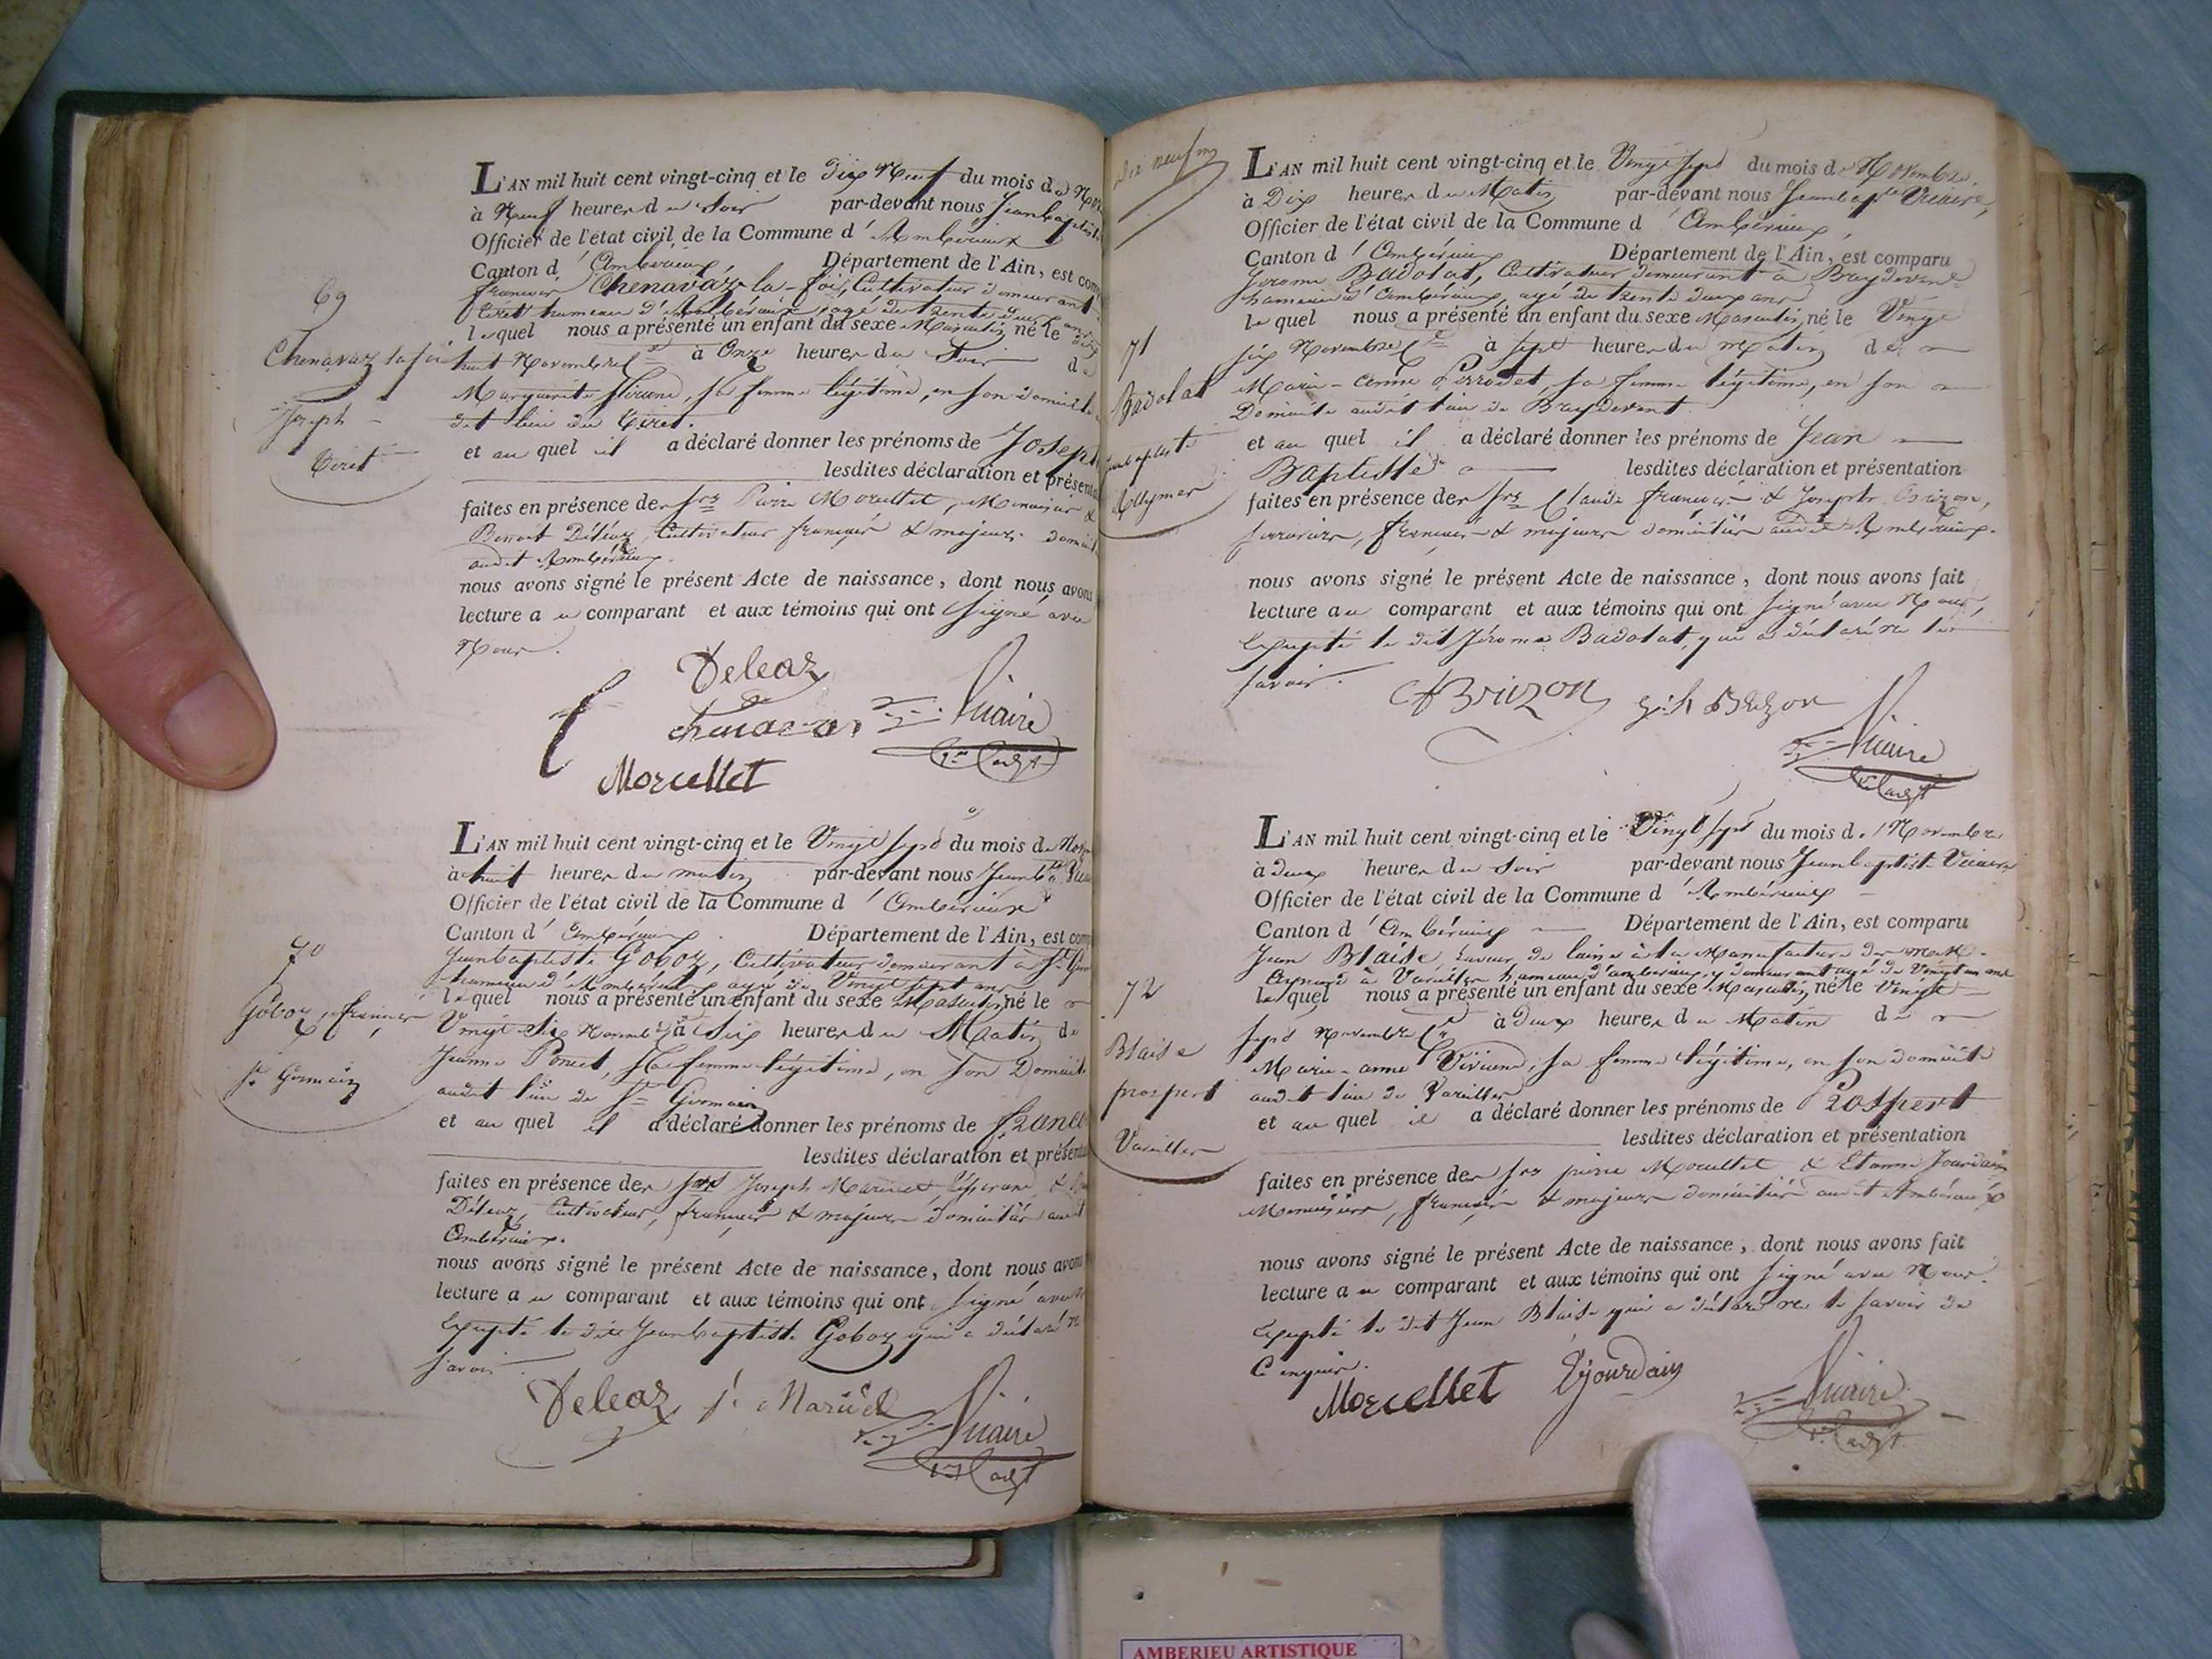 69
Chenavaz la foi
Joseph
Tiret
L'AN mil huit cent vingt-cinq et le Dix Neuf du mois de
à Neuf heures du Soir par-devant nous Jeanbaptiste
Officier de l'état civil de la Commune d' Ambérieux
Canton d' Ambérieux, Département de l'Ain, est com
françois Chenavaz-la-foi, Cultivateur demeurant
Tiret hameau d'Ambérieux, agé de trente deux ans
lequel nous a présenté un enfant du sexe Masculin, né le dix
huit Novembre à Onze heures du Soir de
Marguerite, sa femme légitime, en son domicile
dit lieu du Tiret.
et au quel il a déclaré donner les prénoms de Joseph
lesdites déclaration et présenta
faites en présence des Srs Pierre Morcellet, Menuisier &
Benoit Déléaz, Cultivateur français & majeurs domicil
audit Ambérieux.
nous avons signé le présent Acte de naissance, dont nous avons
lecture au comparant et aux témoins qui ont Signé avec
Nous.
Deleaz
Vicaire
Morcellet
70
Goboz, françois
St Germain
L'AN mil huit cent vingt-cinq et le Vingt Sept du mois de Nov
à huit heures du matin par-devant nous Jeanbte
Officier de l'état civil de la Commune d' Ambérieux
Canton d' Ambérieux. Département de l'Ain, est com
Jeanbaptiste Goboz, Cultivateur demeurant à St Ger
hameau d'Ambérieux agé de Vingt sept ans
lequel nous a présenté un enfant du sexe Masculin, né le
Vingt Six Novembre à Six heures du Matin de
Jeanne Poncet, Sa femme légitime, en Son Domicile
audit lieu de St Germain
et au quel il a déclaré donner les prénoms de franc
lesdites déclaration et présenta
faites en présence des Srs Joseph Marinet &
Déléaz, Cultivateur, français & majeurs domiciliés audit
Ambérieux.
nous avons signé le présent Acte de naissance, dont nous avons
lecture au comparant et aux témoins qui ont Signé avec
Excepté le dit Jeanbaptiste Goboz qui a déclaré ne
Savoir
Deleaz
Vicaire
Dix neuf
71
Badolat
Jean baptiste
L'AN mil huit cent vingt-cinq et le Vingt Sept du mois de Novembre.
à Dix heures du Matin par-devant nous Jeanbapte Vicaire,
Officier de l'état civil de la Commune d' Ambérieux,
Canton d' Ambérieux Département de l'Ain, est comparu
Jerome Badolat, Cultivateur demeurant à Breydevent
hameau d'Ambérieux, agé de trente deux ans
lequel nous a présenté un enfant du sexe Masculin, né le Vingt
six Novembre à Sept heures du Matin de
Marie-anne Perrodet, sa femme légitime, en son
Domicile audit lieu de Breydevent.
et au quel il a déclaré donner les prénoms de Jean
Baptiste lesdites déclaration et présentation
faites en présence des Srs Claude françois & Joseph Brizon,
Serruriers, français & majeurs domiciliés audit Ambérieux.
nous avons signé le présent Acte de naissance, dont nous avons fait
lecture au comparant et aux témoins qui ont Signé avec Nous,
Excepté le dit Jérome Badolat, qui a déclaré ne le
Savoir.
Vicaire
72
Blaise
prospert
Vareilles
L'AN mil huit cent vingt-cinq et le Vingt Sept du mois de Novembre
à deux heures du Soir par-devant nous Jeanbaptiste Vicaire
Officier de l'état civil de la Commune d' Ambérieux
Canton d' Ambérieux Département de l'Ain, est comparu
Jean Blaise, Laveur de laine à la Manufacture de
à Vareilles hameau d'ambérieux, y demeurant agé de Vingt un ans
lequel nous a présenté un enfant du sexe Masculin, né le Vingt
Sept Novembre à Deux heures du Matin de
Marie-anne Vivienne, sa femme légitime, en son domicile
audit lieu de Vareilles
et au quel il a déclaré donner les prénoms de Prospert
lesdites déclaration et présentation
faites en présence des Srs pierre Morcellet & Etienne Jourdain
Menuisiers, français & majeurs domiciliés audit Ambérieux
nous avons signé le présent Acte de naissance, dont nous avons fait
lecture au comparant et aux témoins qui ont Signé avec Nous.
Excepté le dit Jean Blaise qui a déclaré ne le Savoir de
Ce enquis.
Morcellet Ejourdain
Vicaire
AMBERIEU ARTISTIQUE